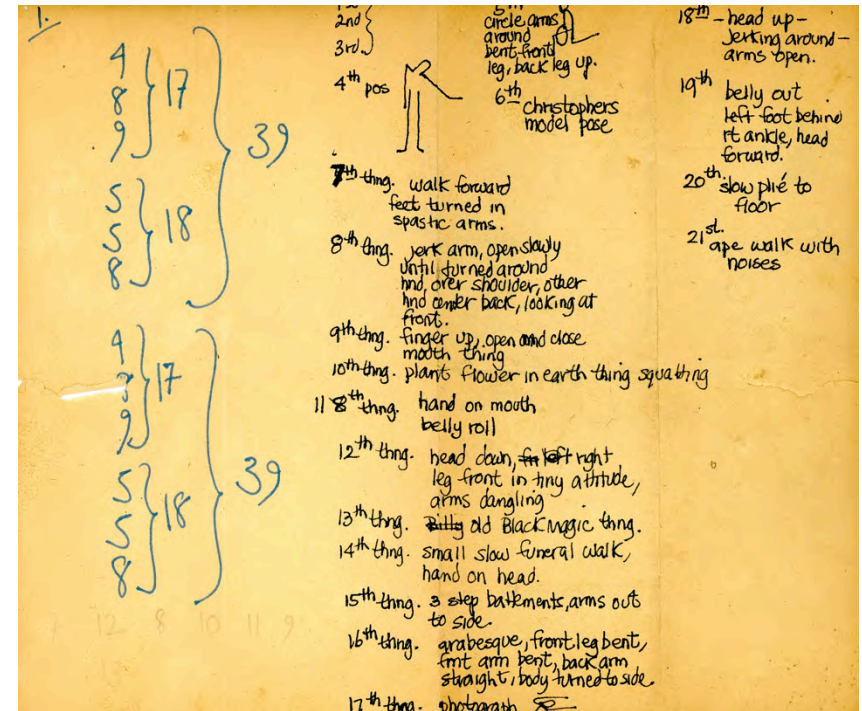 1.
4
8 17
9
39
5
5 18
8
4
17
9
39
5
5 18
8
12 8 10 11 9
2nd
3rd
4th pos
circle arms
around
bent front
leg, back leg up.
6th christophers
model pose
7th thng. walk forward
feet turned in
spastic arms.
8th thng. jerk arm, open slowly
until turned around
hnd, over shoulder, other
hnd center back, looking at
front.
9th thng. finger up, open and close
mouth thing
10th thng. plant flower in earth thing squatting
11 8th thng. hand on mouth
belly roll
12th thng. head down, left right
leg front in tiny attitude,
arms dangling
13th thng. Billy old Black Magic thng.
14th thng. small slow funeral walk,
hand on head.
15th thng. 3 step battements, arms out
to side.
16th thng. arabesque, front leg bent,
frnt arm bent, back arm
straight, body turned to side.
17th thng. photograph
18th - head up -
Jerking around -
arms open.
19th belly out
left foot behind
rt ankle, head
forward.
20th slow plié to
floor
21st. ape walk with
noises